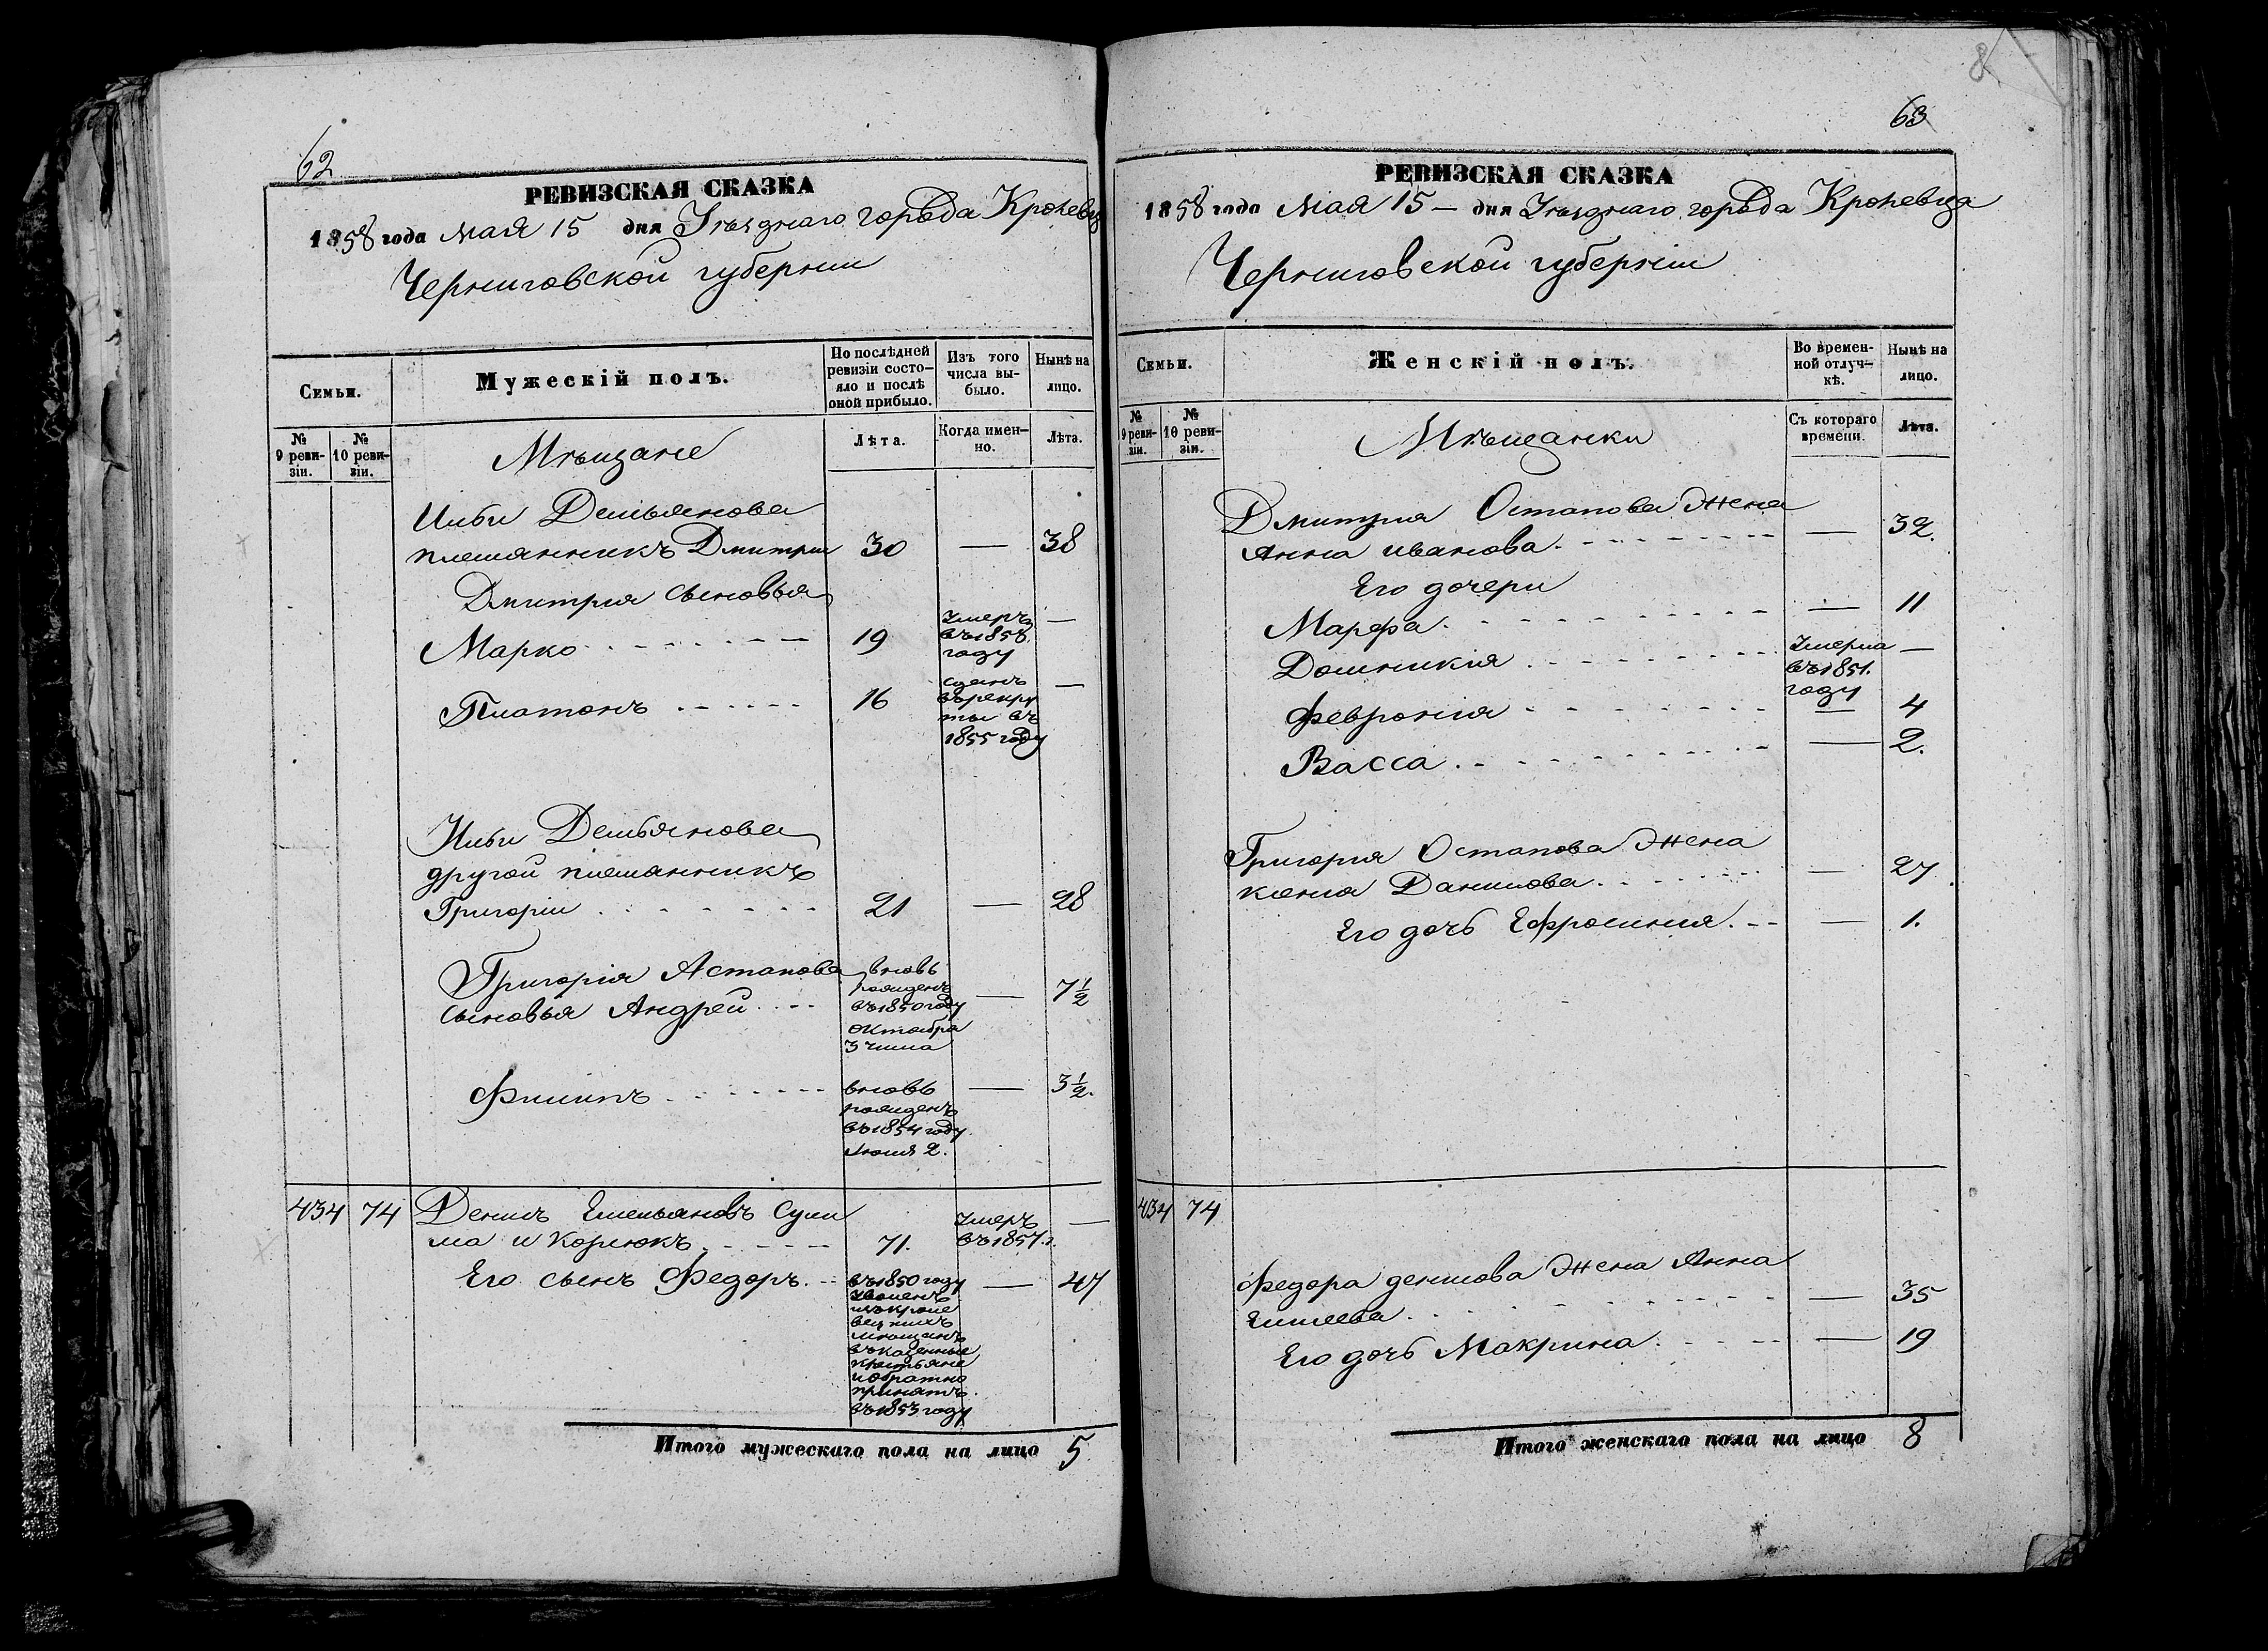 62
РЕВИЗСКАЯ СКАЗКА
1858 года мая 15 дня Уѣзднаго города Кролевца
Черниговской губернии
Семьи.
Мужескій полъ.
По послѣдней ревизіи состояло и послѣ оной прибыло.
Изъ того числа выбыло.
Нынѣ на лицо.
№ 9 ревизіи.
№ 10 ревизіи.
Мѣщане
Лѣта.
Когда именно.
Лѣта.
Ильи Демьянова
племянникъ Дмитрий 30 — 38
Дмитрия сыновья
Марко 19 умеръ въ 1858 году —
Платонъ 16 сданъ въ рекруты въ 1855 году —
Ильи Демьянова
другой племянникъ
Григорій 21 — 28
Григорія Астапова
сыновья Андрей вновь рожденъ въ 1850 году октября 3 числа — 7½
Филипъ вновь рожденъ въ 1854 году июня 2. — 3½.
434 74 Денисъ Емельяновъ Сули
ма и Корнюкъ 71. умеръ въ 1857 г. —
Его сынъ Федоръ въ 1850 году уволенъ изъ кролевецкихъ мѣщанъ въ казенные крестьяне и обратно принятъ въ 1853 году — 47
Итого мужескаго пола на лицо 5
8
63
РЕВИЗСКАЯ СКАЗКА
1858 года мая 15 — дня Уѣзднаго города Кролевца
Черниговской губерніи
Семьи.
Женскій полъ.
Во временной отлучкѣ.
Нынѣ на лицо.
№ 9 ревизіи.
№ 10 ревизіи.
Мѣщанки
Съ котораго времени.
Лѣта.
Дмитрия Остапова жена
Анна иванова — 32.
Его дочери
Марфа — 11
Домникия умерла въ 1851. году —
Феврония — 4
Васса — 2.
Григория Остапова жена
ксения Данилова — 27.
Его дочь Ефросиния — 1.
434 74
Федора денисова жена Анна
Елисеева — 35
Его дочь Макрина — 19
Итого женскаго пола на лицо 8